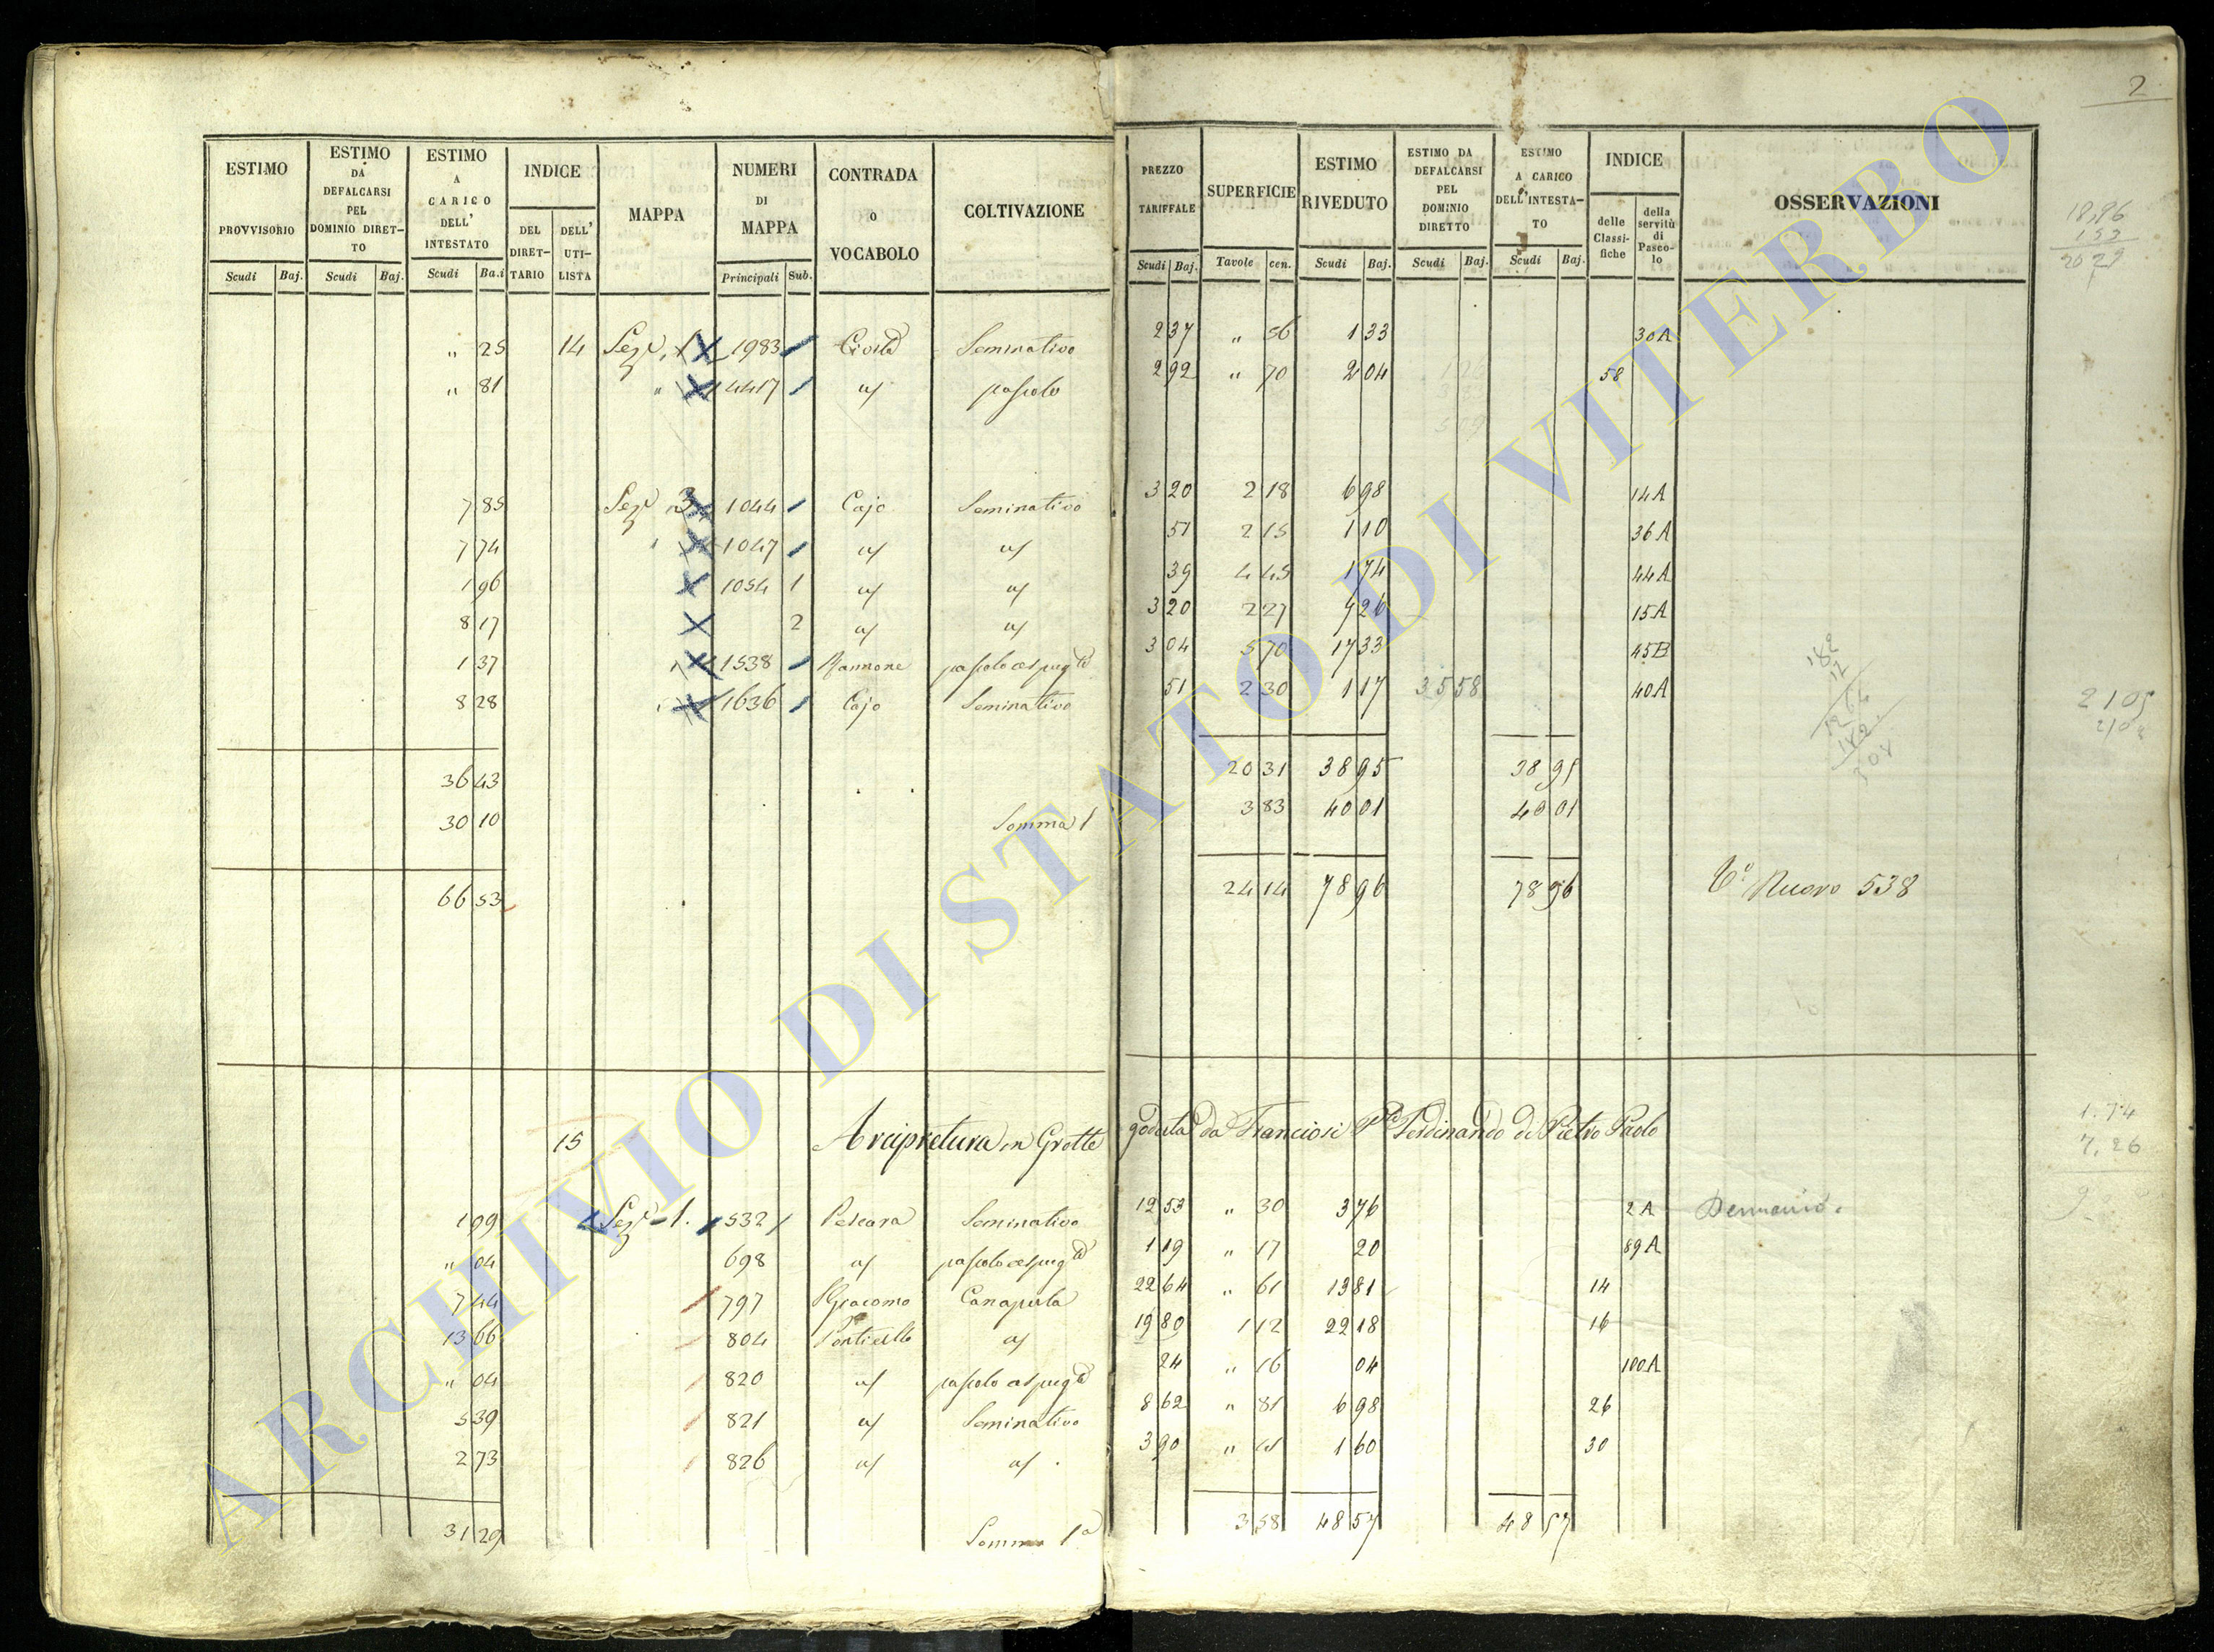 2
ESTIMO PROVVISORIO
ESTIMO DA DEFALCARSI PEL DOMINIO DIRET-TO
ESTIMO A CARICO DELL' INTESTATO
INDICE
DEL DIRET-TARIO
DELL' UTI-LISTA
MAPPA
NUMERI DI MAPPA
CONTRADA o VOCABOLO
COLTIVAZIONE
PREZZO TARIFFALE
SUPERFICIE
ESTIMO RIVEDUTO
ESTIMO DA DEFALCARSI PEL DOMINIO DIRETTO
ESTIMO A CARICO DELL'INTESTA-TO
INDICE
delle Classi-fiche
della servitù di Pasco-lo
OSSERVAZIONI
Scudi Baj. Scudi Baj. Scudi Ba.i Principali Sub. Scudi Baj. Tavole cen. Scudi Baj. Scudi Baj. Scudi Baj.
" 25 14 Sez.e 1 1983 Seminativo 2 37 " 56 1 33 30A
" 81 " 4417 a/ pascolo 2 92 " 70 2 04 58
7 85 Sez.e 3 1044 Cajo Seminativo 3 20 2 18 6 98 14A
7 74 " 1047 a/ a/ 51 2 15 1 10 36A
1 96 1054 1 a/ a/ 39 4 45 1 74 44A
8 17 2 a/ a/ 3 20 2 27 7 26 15A
1 37 1538 pascolo cespug.to 3 04 5 70 17 33 45B
8 28 1636 Cajo Seminativo 51 2 30 1 17 35 58 40A
36 43 20 31 38 95 38 95
30 10 Somma 1 3 83 40 01 40 01
66 53 24 14 78 96 78 96 Nuovo 538
15 Arcipretura in Grotte goduta da Franciosi Ferdinando di Pietro Paolo
1 99 Sez.e 1. 532 Pescara Seminativo 12 53 " 30 3 76 2A
" 04 698 a/ pascolo cespug.to 1 19 " 17 20 89A
7 44 797 S Giacomo Canapula 22 64 " 61 13 81 14
13 66 804 Ponticello a/ 19 80 1 12 22 18 16
" 04 820 a/ pascolo cespug.to 24 " 16 04 100A
5 39 821 a/ Seminativo 8 62 " 81 6 98 26
2 73 826 a/ a/ 3 90 " 41 1 60 30
31 29 Somma 1a 3 58 48 57 48 57
1.74
7.26
ARCHIVIO DI STATO DI VITERBO